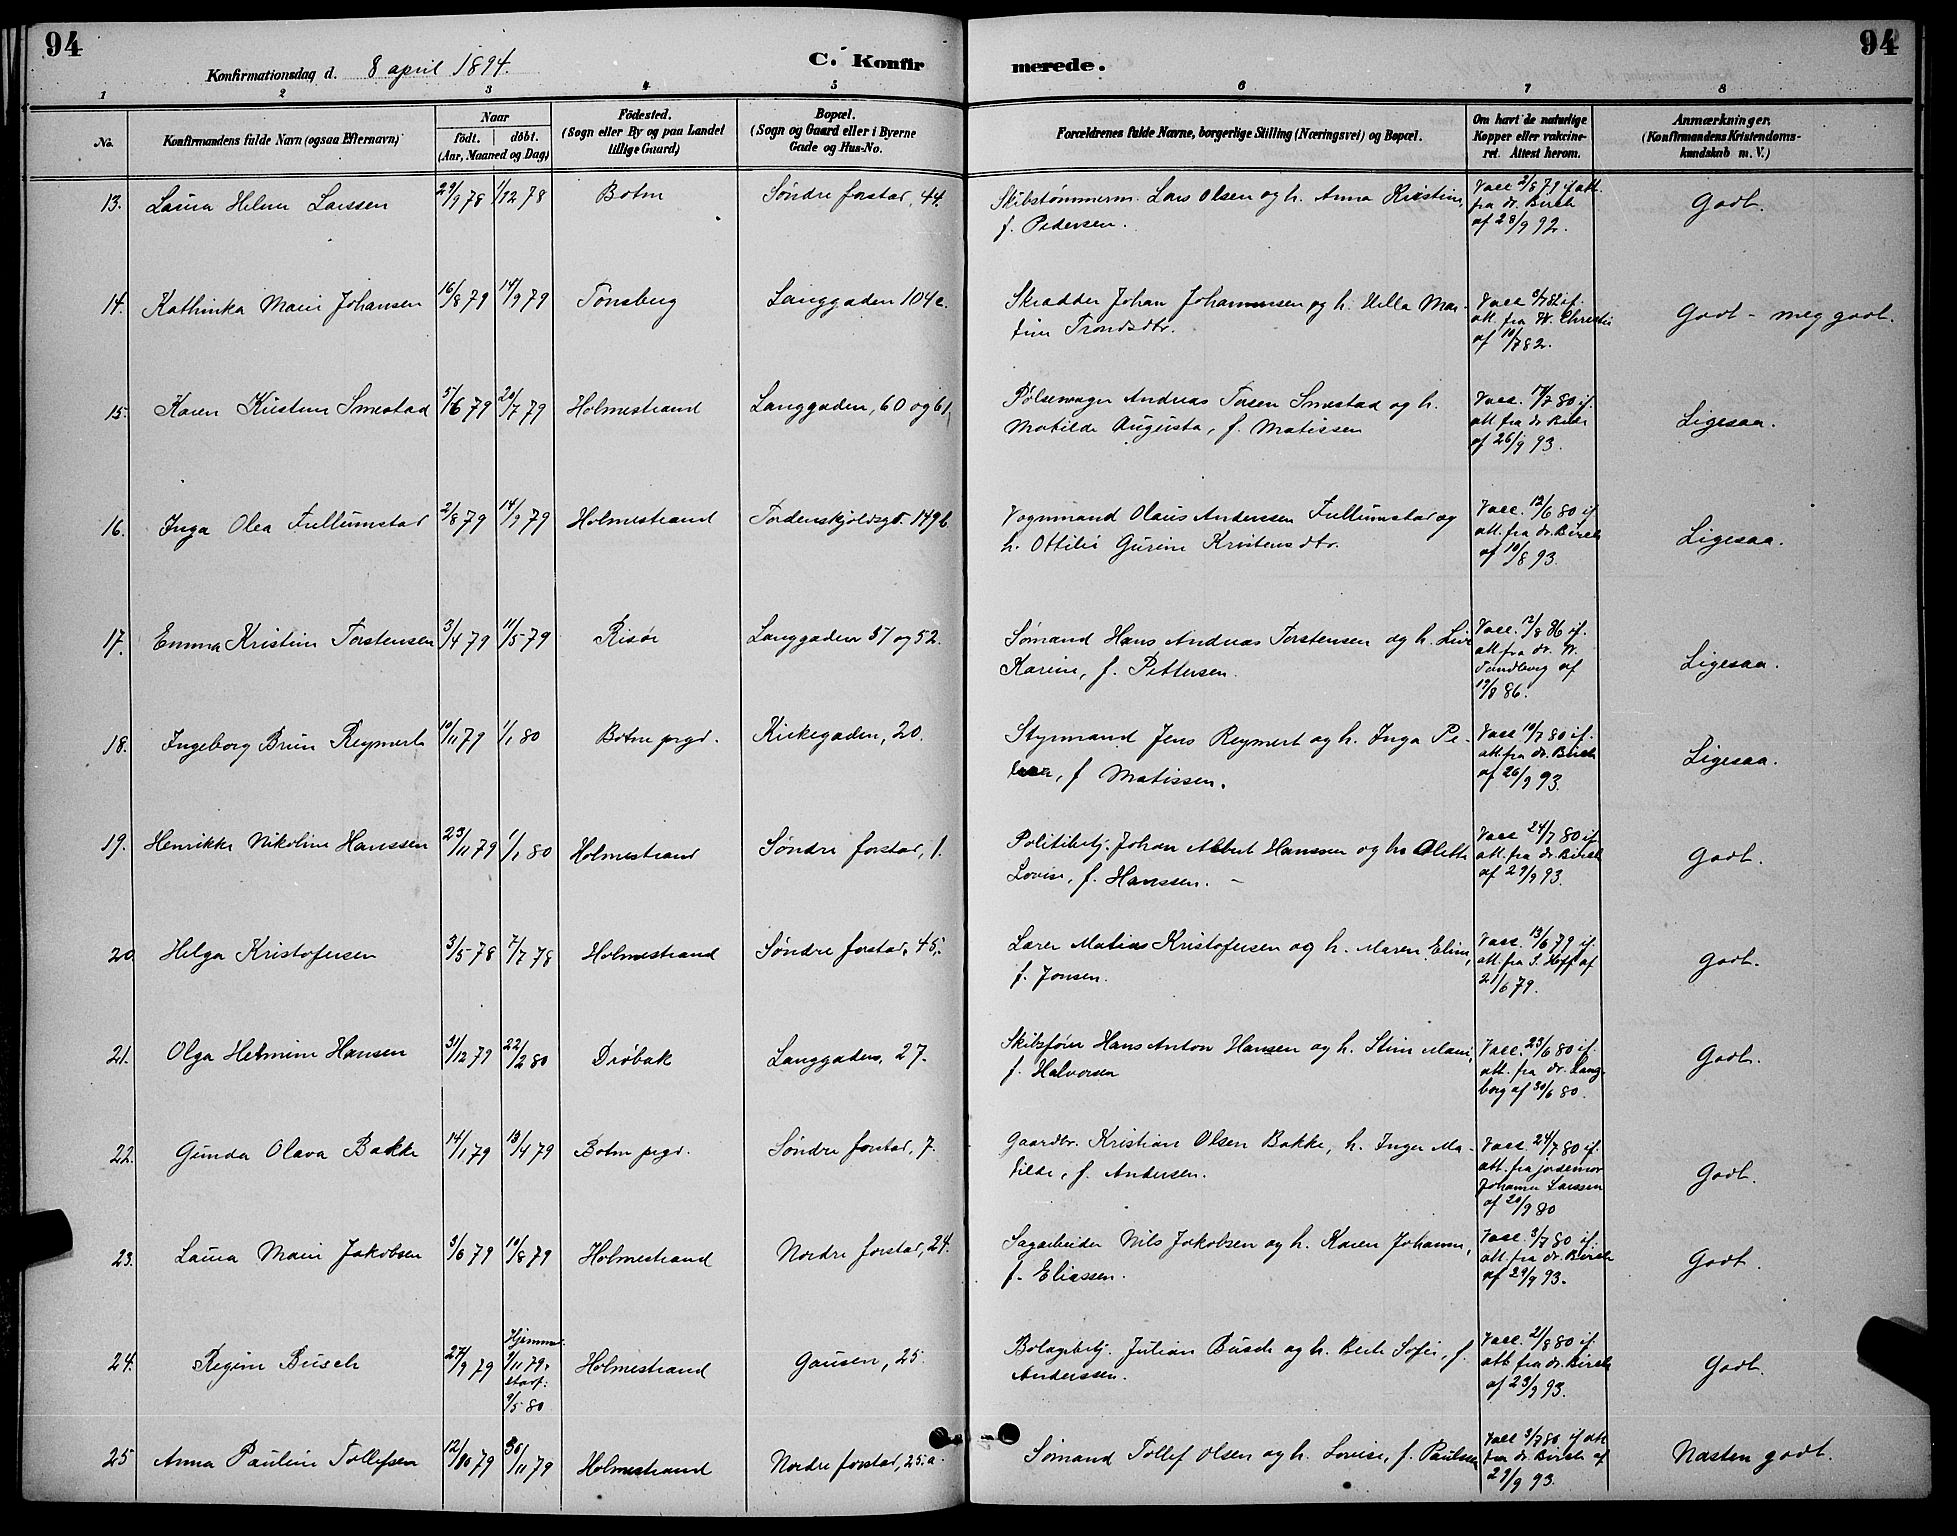 94
Konfirmationsdag d. 8 april 1894.
C. Konfirmerede.
94
1 2 3 4 5 6 7 8
No.
Konfirmandens fulde Navn (ogsaa Efternavn)
Naar
födt. döbt.
(Aar, Maaned og Dag)
Födested.
(Sogn eller By og paa Landet
tillige Gaard)
Bopæl.
(Sogn og Gaard eller i Byerne
Gade og Hus-No.
Forældrenes fulde Navne, borgerlige Stilling (Næringsvei) og Bopæl.
Om havt de naturlige
Kopper eller vakcine-
ret. Attest herom.
Anmærkninger.
(Konfirmandens Kristendoms-
kundskab m. V.)
13. Laura Helene Larssen 29/9 78 1/12 78 Botne Søndre forstad, 44.
Skibstømmerm. Lars Olsen og h. Anna Kristine,
f. Pedersen.
Vacc 2/8 79 if. att.
fra dr. Birch
af 28/9 92.
Godt.
14. Kathinka Marie Johansen 16/8 79 14/9 79 Tønsberg Langgaden 104 c.
Skrædder Johan Johannessen og h. Hella Mar-
tine Trondsdtr.
Vacc 3/7 82 if.
att. fra W. Christie
af 10/7 82.
Godt - meg godt.
15. Karen Kristine Smestad 5/6 79 20/7 79 Holmestrand Langgaden, 60 og 61,
Pølsemager Andreas Torsen Smestad og h.
Matilde Augusta, f. Matissen
Vacc. 17/7 80 if.
att. fra dr. Birch
af 26/9 93.
Ligesaa.
16. Inga Olea Fullumstad 2/8 79 14/9 79 Holmestrand Tordenskjoldsgd. 149 b.
Vognmand Olaus Anderssen Fullumstad og
h. Ottilie Gurine Kristensdtr.
Vacc. 12/6 80 if
att. fra dr. Birch
af 10/8 93.
Ligesaa.
17. Emma Kristine Torstensen 3/4 79 11/5 79 Risør Langgaden 51 og 52.
Sømand Hans Andreas Torstensen og h. Live
Karine, f. Pettersen.
Vacc. 12/8 86 if.
att. fra dr. W.
Sandberg af
19/8 86.
Ligesaa.
18. Ingeborg Brun Reymert 10/11 79 1/1 80 Botne prgd. Kirkegaden, 20.
Styrmand Jens Reymert og h. Inga Pe-
, f Matissen.
Vacc 10/7 80 if.
att. fra dr. Birch
af 26/9 93.
Ligesaa.
19. Henrikke Nikoline Hanssen 23/11 79 1/1 80 Holmestrand Søndre forstad, 1.
Politibetj. Johan Albert Hanssen og h. Olette
Lovise, f. Hanssen. –
Vacc 24/7 80 if.
att. fra dr. Birch
af 29/9 93.
Godt.
20 Helga Kristofersen 3/5 78 7/7 78 Holmestrand Søndre forstad, 45,
Lærer Matias Kristofersen og h. Maren Eline,
f. Jonsen.
Vacc. 13/6 79 if.
att. fra S. Hoff af
21/6 79.
Godt.
21. Olga Helmine Hansen 31/12 79 22/2 80 Drøbak Langgaden, 27.
Skibsfører Hans Anton Hansen og h. Stine Marie,
f. Halvorsen
Vacc. 23/6 80 if.
att. fra dr. Lang-
berg af 30/6 80.
Godt.
22. Gunda Olava Bakke 14/1 79 13/4 79 Botne prgd. Søndre forstad, 7.
Gaardbr. Kristian Olsen Bakke, h. Inger Ma-
tilde, f. Andersen.
Vacc. 24/7 80 if.
att. fra jordemor
Johanne Larssen
af 20/9 80
Godt.
23. Laura Marie Jakobsen 3/6 79 10/8 79 Holmestrand Nordre forstad, 24.
Sagarbeider Nils Jakobsen og h. Karen Johanne,
f. Eliassen.
Vacc. 3/7 80 if.
att. fra dr. Birch
af 29/9 93.
Godt.
24. Regine Busch 27/9 79 Hjemme 9/11 79, stadf: 9/5 80 Holmestrand Gausen, 25.
Bolagsbetj. Julian Busch og h. Berte Sofie, f.
Anderssen.
Vacc. 21/8 80 if.
att. fra dr. Birch
af 23/9 93.
Godt.
25 Anna Pauline Tollefsen 12/10 79 30/11 79 Holmestrand Nordre forstad, 25.a.
Sømand Tollef Olsen og h. Lovise, f. Paulsen
Vacc 3/7 80 if att
fra dr. Birch af
29/9 93.
Næsten godt.